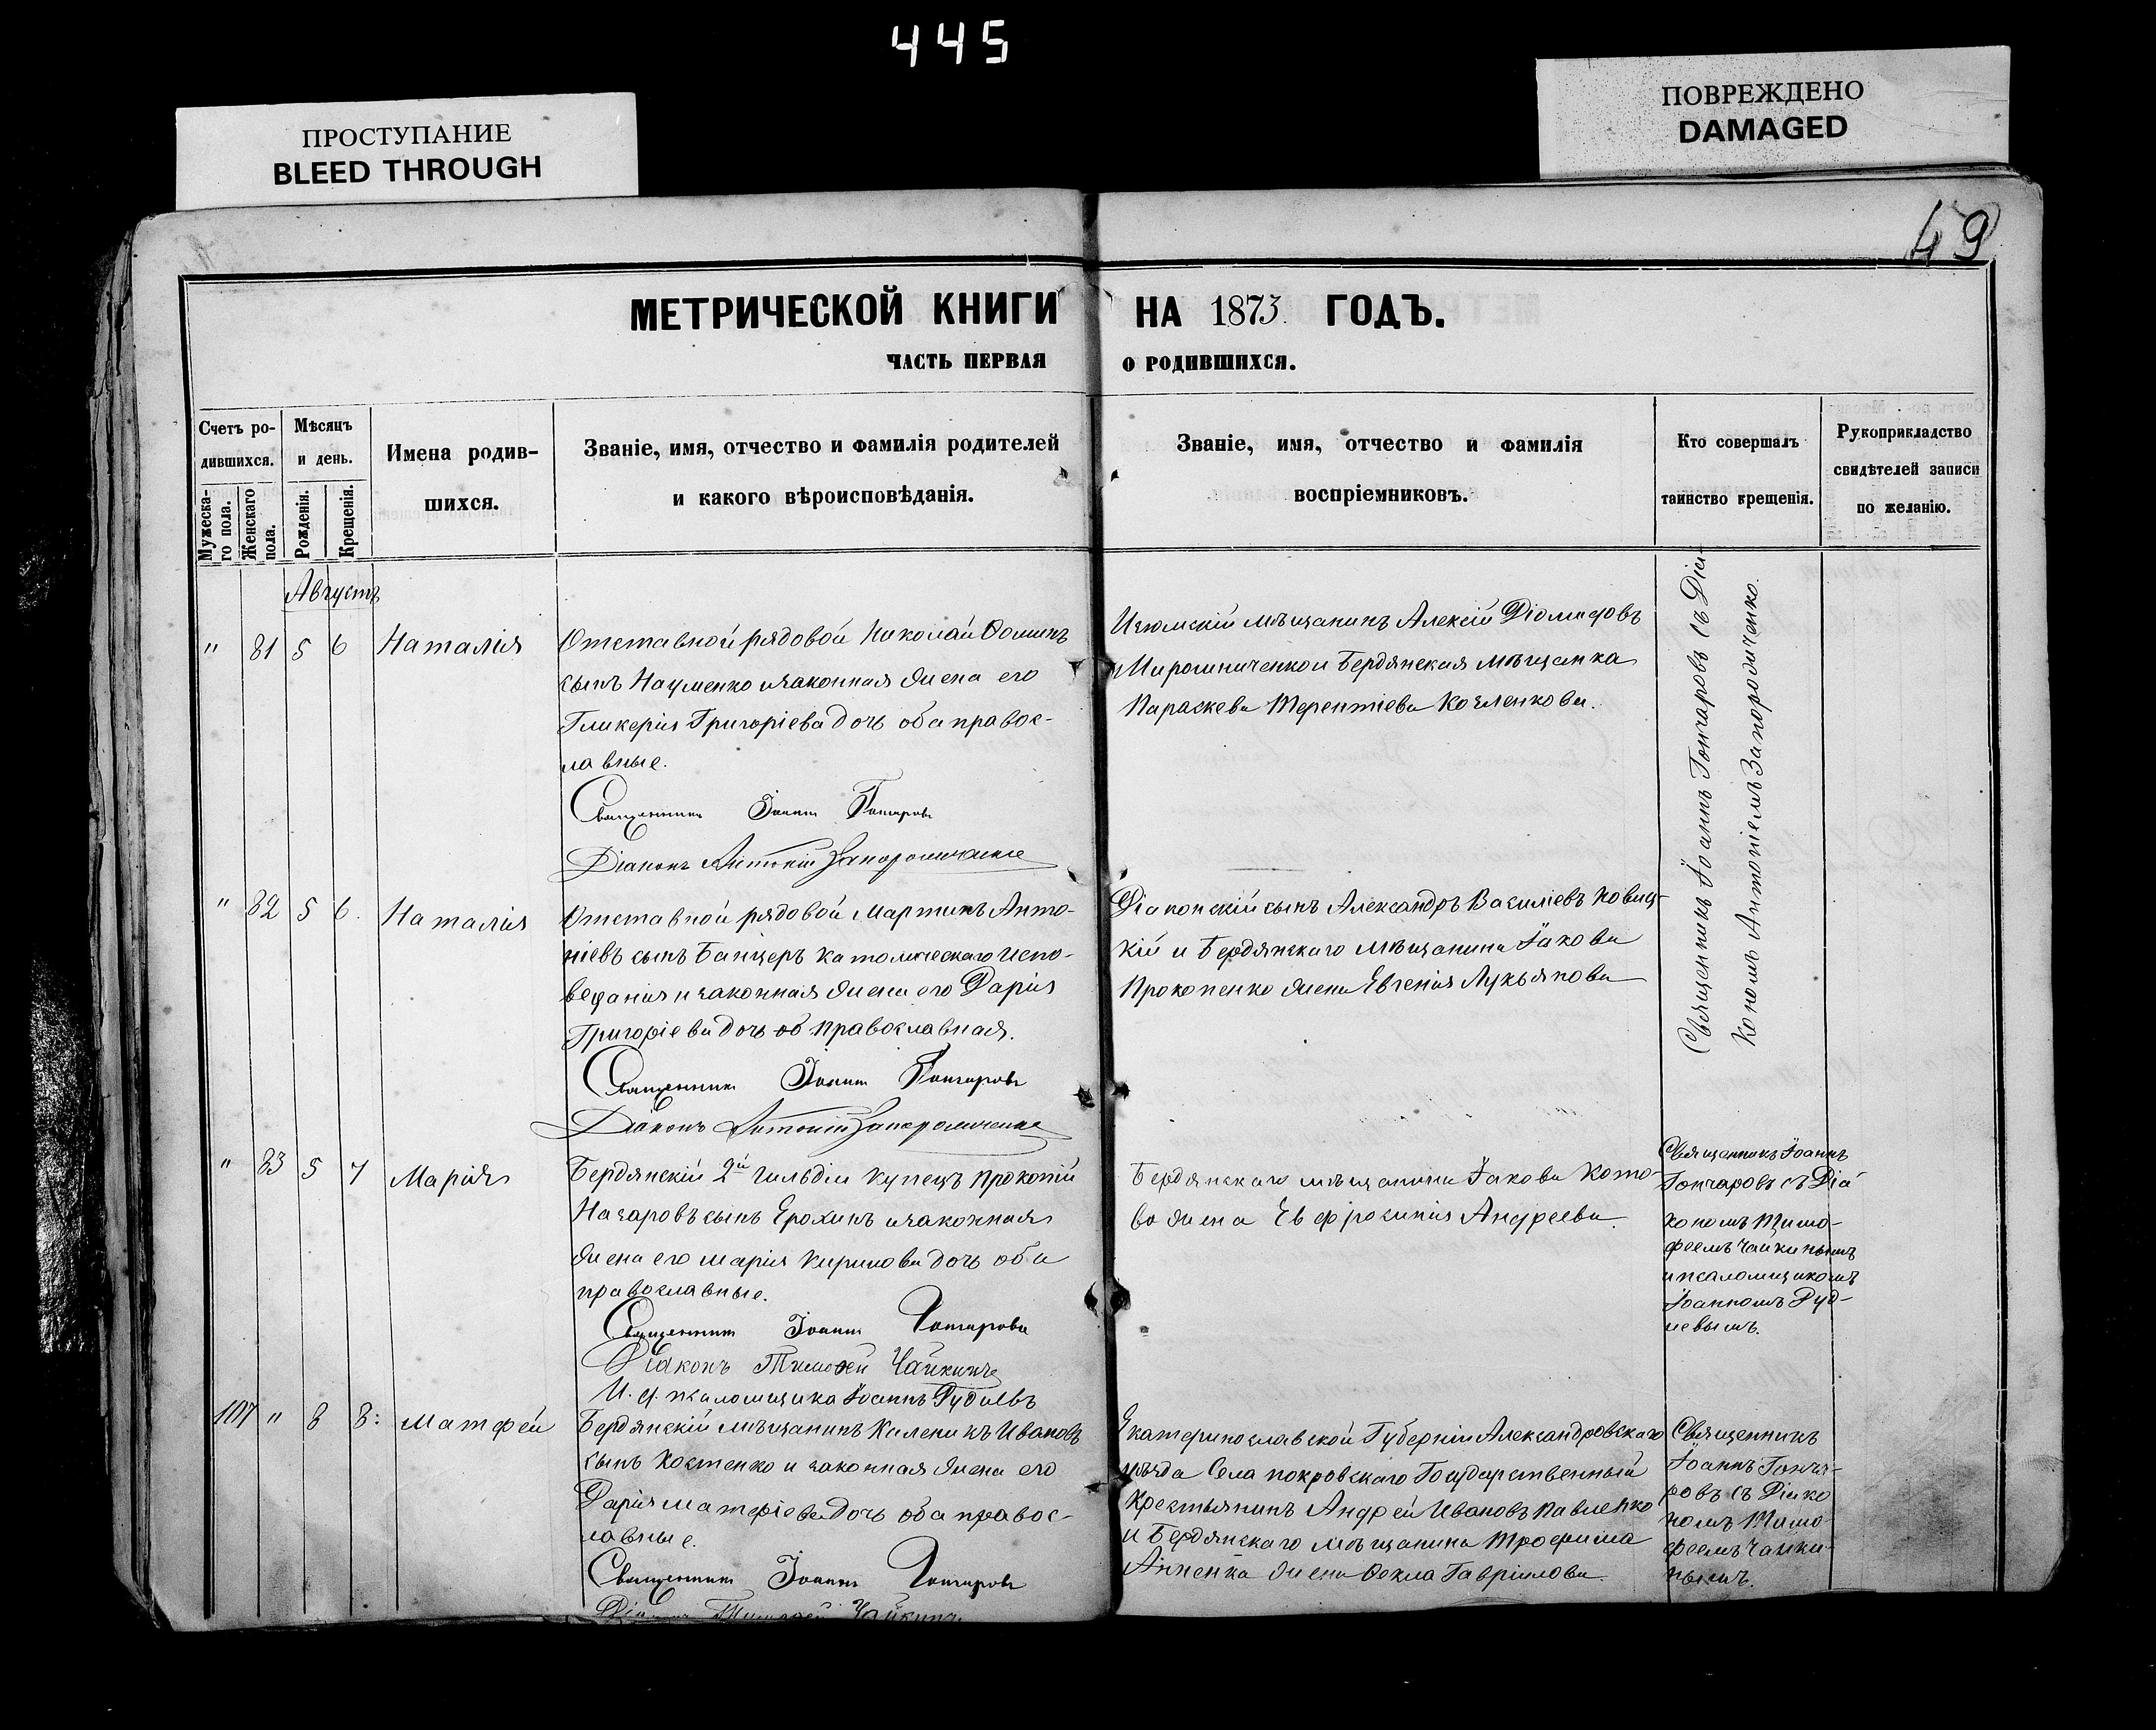 445
ПРОСТУПАНИЕ
BLEED THROUGH
ПОВРЕЖДЕНО
DAMAGED
49
МЕТРИЧЕСКОЙ КНИГИ НА 1873 ГОДЪ.
ЧАСТЬ ПЕРВАЯ О РОДИВШИХСЯ.
Счетъ ро-
дившихся.
Мужеска-
го пола.
Женскаго
пола.
Мѣсяцъ
и день.
Рожденія.
Крещенія.
Имена родив-
шихся.
Званіе, имя, отчество и фамилія родителей
и какого вѣроисповѣданія.
Званіе, имя, отчество и фамилія
воспріемниковъ.
Кто совершалъ
таинство крещенія.
Рукоприкладство
свидѣтелей записи
по желанію.
Августъ
" 81 5 6 Наталія
Отставной рядовой Николай Ѳоминъ
сынъ Науменко и законная жена его
Гликерія Григоріева дочь оба правос-
лавные.
Священникъ Іоаннъ Гончаровъ
Діаконъ Антоній Запорожченко
Изюмскій мѣщанинъ Алексій Діомидовъ
Мирошниченко и Бердянская мѣщанка
Параскева Терентіева Козленкова.
Священникъ Іоаннъ Гончаровъ съ Діа-
кономъ Антоніемъ Запорожченко.
" 82 5 6. Наталія
Отставной рядовой Мартинъ Анто-
ніевъ сынъ Банцеръ католическаго испо-
веданія и законная жена его Дарія
Григоріева дочь об православная.
Священникъ Іоаннъ Гончаровъ
Діаконъ Антоній Запорожченко
Діаконскій сынъ Александръ Василіевъ Новиц-
кій и Бердянскаго мѣщанина Іакова
Прокопенко жена Евгенія Лукьянова
" 83 5 7 Марія
Бердянскій 2й гильдіи купецъ Прокопій
Назаровъ сынъ Ерохинъ и законная
жена его Марія Кирилова дочь оба
православные.
Священникъ Іоаннъ Гончаровъ
Діаконъ Тимоѳей Чайкинъ
И. д. псаломщика Іоаннъ Рудневъ
Бердянскаго мѣщанина Іакова Кото-
ва жена Евфросинія Андреева.
Священникъ Іоаннъ
Гончаровъ съ Діа-
кономъ Тимо-
феемъ Чайкинымъ
и псаломщикомъ
Іоанномъ Руд-
невымъ.
107 " 8 8: Матфей
Бердянскій мѣщанинъ Каленикъ Ивановъ
сынъ Костенко и законная жена его
Дарія Матфіева дочь оба правос-
лавные.
Священникъ Іоаннъ Гончаровъ
Діаконъ Тимоѳей Чайкинъ.
Екатеринославской Губерніи Александровскаго
уѣзда Села Покровскаго Государственный
Крестьянинъ Андрей Ивановъ Павленко
и Бердянскаго мѣщанина Трофима
жена Ѳекла Гавріилова.
Священникъ
Іоаннъ Гонча-
ровъ съ Діако
номъ Тимо-
феемъ Чайки-
нымъ.